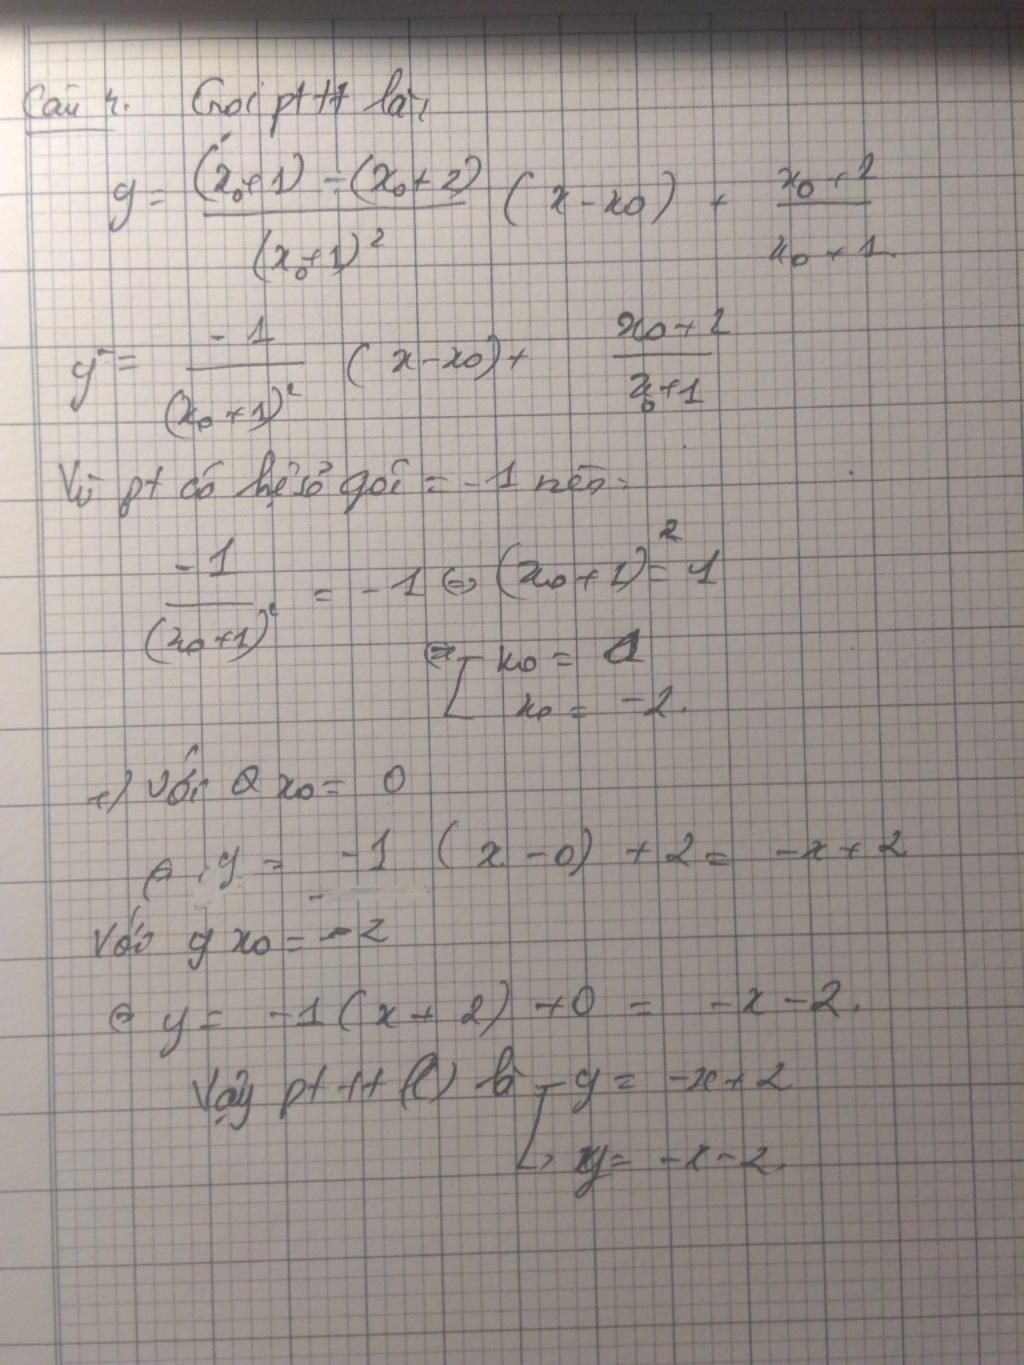 Câu 4. Gọi pt tt là:
y = ((x₀+1) - (x₀+2))/(x₀+1)² (x - x₀) + (x₀+2)/(x₀+1).
y = -1/(x₀+1)² (x - x₀) + (x₀+2)/(x₀+1)
Vì pt có hệ số góc = -1 nên:
-1/(x₀+1)² = -1 ⇔ (x₀+1)² = 1
⇔ [ x₀ =
x₀ = -2.
+) Với x₀ = 0
⇔ y = -1 (x - 0) + 2 = -x + 2
Với x₀ = -2
⇔ y = -1 (x + 2) + 0 = -x - 2.
Vậy pt tt (C) là [ y = -x + 2
y = -x - 2.